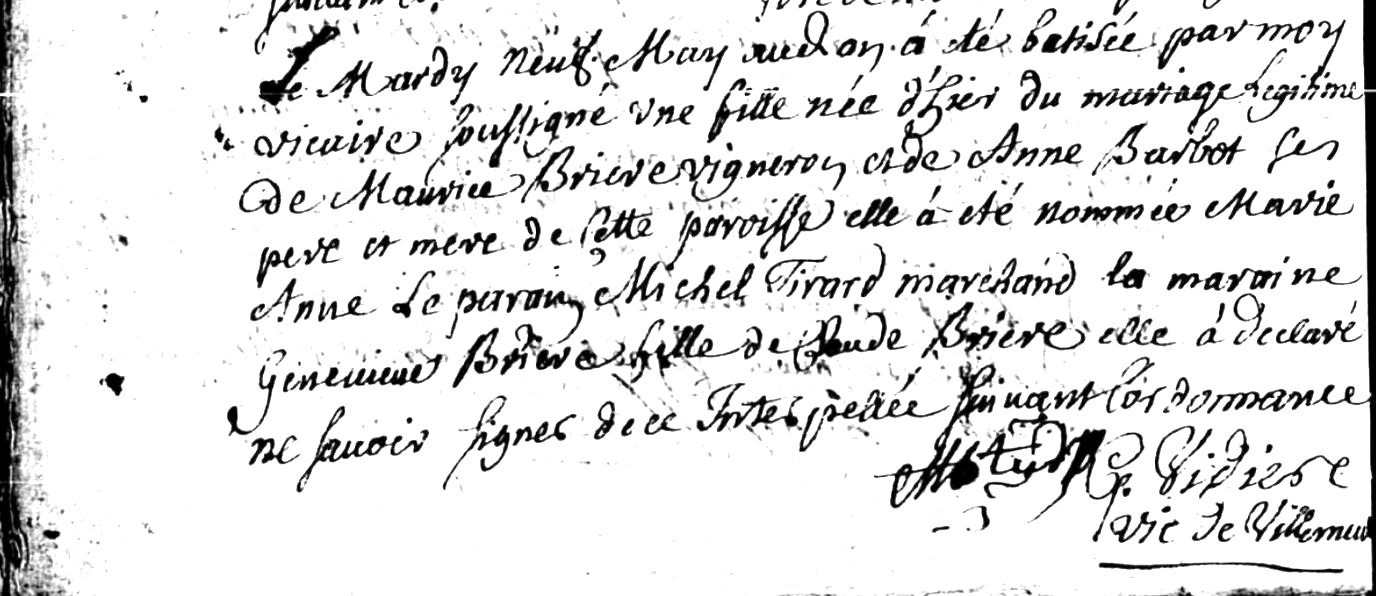 Le Mardy neuf May audt an á été batisée par moy
vicaire soussigné une fille née d'hier du mariage Legitime
de Maurice Briere vigneron et de Anne Barbot ses
pere et mere de cette paroisse elle á été nommée Marie
Anne Le parain Michel Tirard marchand la maraine
Genevieve Briere fille de Claude Briere elle á declaré
ne savoir signer de ce Interpellée suivant l'ordonnance
P. Vidiere
vic de Villemeu